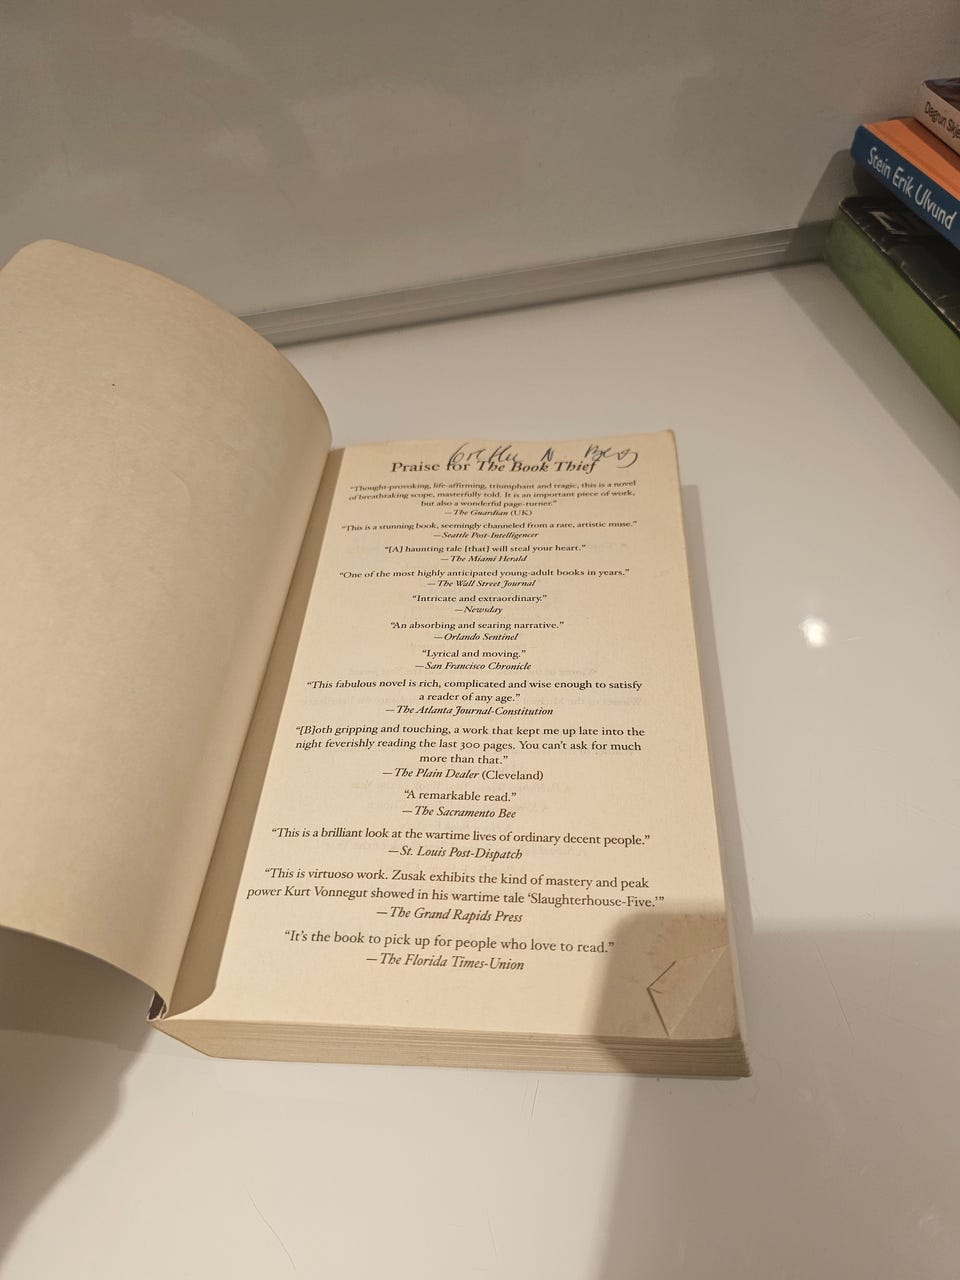 Praise for The Book Thief
“Thought-provoking, life-affirming, triumphant and tragic, this is a novel
of breathtaking scope, masterfully told. It is an important piece of work,
but also a wonderful page-turner.”
—The Guardian (UK)
“This is a stunning book, seemingly channeled from a rare, artistic muse.”
—Seattle Post-Intelligencer
“[A] haunting tale [that] will steal your heart.”
—The Miami Herald
“One of the most highly anticipated young-adult books in years.”
—The Wall Street Journal
“Intricate and extraordinary.”
—Newsday
“An absorbing and searing narrative.”
—Orlando Sentinel
“Lyrical and moving.”
—San Francisco Chronicle
“This fabulous novel is rich, complicated and wise enough to satisfy
a reader of any age.”
—The Atlanta Journal-Constitution
“[B]oth gripping and touching, a work that kept me up late into the
night feverishly reading the last 300 pages. You can’t ask for much
more than that.”
—The Plain Dealer (Cleveland)
“A remarkable read.”
—The Sacramento Bee
“This is a brilliant look at the wartime lives of ordinary decent people.”
—St. Louis Post-Dispatch
“This is virtuoso work. Zusak exhibits the kind of mastery and peak
power Kurt Vonnegut showed in his wartime tale ‘Slaughterhouse-Five.’”
—The Grand Rapids Press
“It’s the book to pick up for people who love to read.”
—The Florida Times-Union
Dagrun
Stein Erik Ulvund